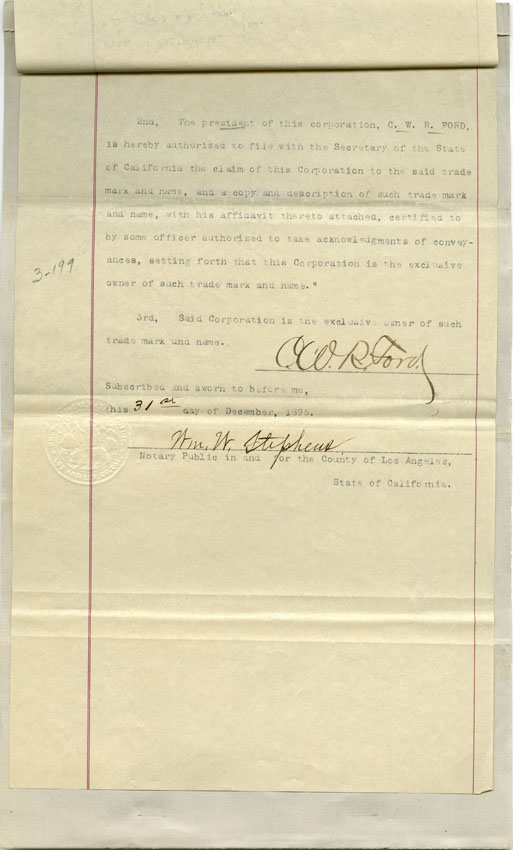 2nd, The president of this corporation, C. W. R. FORD,
is hereby authorized to file with the Secretary of the State
of California the claim of this Corporation to the said trade
mark and name, and a copy and description of such trade mark
and name, with his affidavit thereto attached, certified to
by some officer authorized to take acknowledgments of convey-
ances, setting forth that this Corporation is the exclusive
owner of such trade mark and name."
3-199
3rd, Said Corporation is the exclusive owner of such
trade mark and name.
C.W.R. Ford.
Subscribed and sworn to before me,
this 31st day of December, 1898.
Wm. W. Stephens,
Notary Public in and for the County of Los Angeles,
State of California.